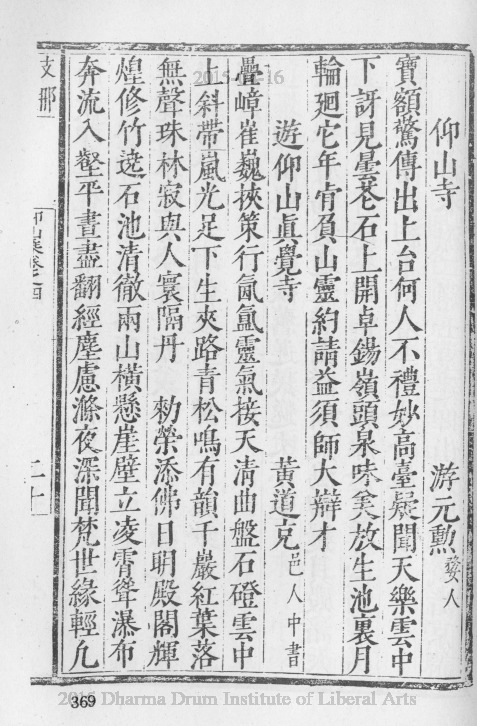 仰山寺　　　　　　　游元勳 婺人
寶額驚傳出上台何人不禮妙高臺疑聞天樂雲中
下訝見曇花石上開卓錫嶺頭杲味矣放生池裏月
輪廻它年肯負山靈約請益須師大辯才
遊仰山眞覺寺　　　黃道克 邑人中書
疊嶂崔巍挾策行氤氳靈氣接天清曲盤石磴雲中
上斜帶嵐光足下生夾路青松鳴有韻千巖紅葉落
無聲珠林寂與人寰隔丹　勑榮添佛日明殿閣輝
煌修竹遶石池清徹兩山橫懸崖壁立凌霄聳瀑布
奔流入壑平晝盡翻經塵慮滌夜深聞梵世緣輕凢
支那
卷之四
二十
369
2015 16
Dharma Drum Institute of Liberal Arts